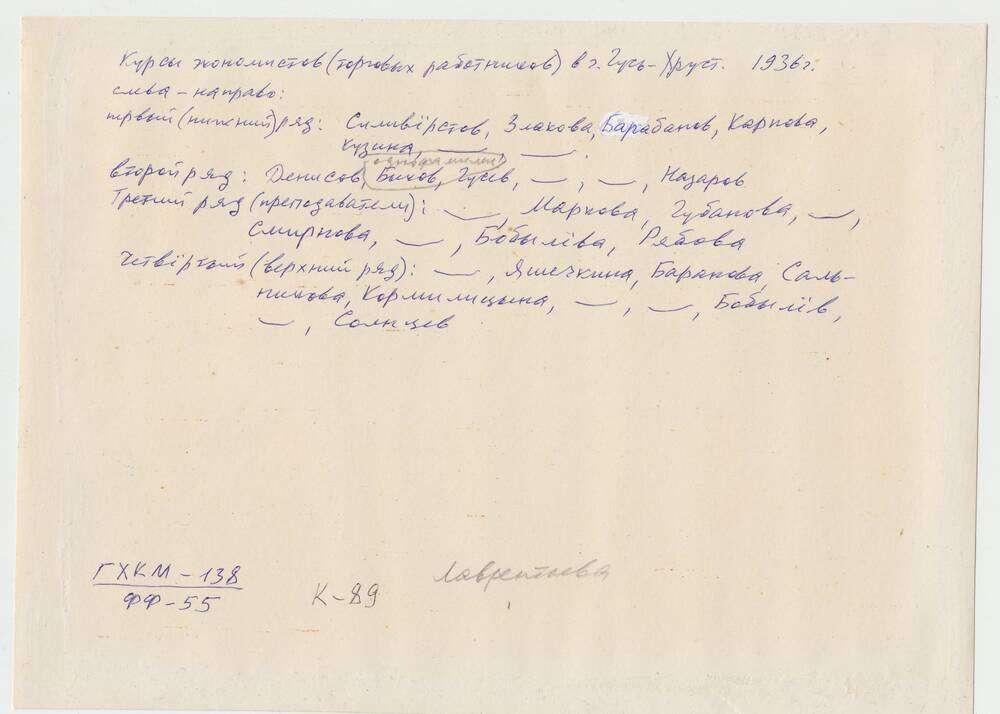 Курсы экономистов (торговых работников) в г. Гусь-Хруст. 1936г.
слева - направо:
первый (нижний) ряд: Силивёрстов, Злакова, Барабанов, Карпова,
Кузина, —, —.
однофамилец
второй ряд: Денисов, Быков, Гусев, —, —, Назаров
Третий ряд (преподаватели): —, Маркова, Губанова, —,
Смирнова, —, Бобылёва, Рябова
Четвёртый (верхний ряд): —, Яшечкина, Баранова, Саль-
никова, Кормилицына, —, —, Бобылёв,
—, Солнцев
ГХКМ - 138
ФФ - 55
К-89
Лаврентьева